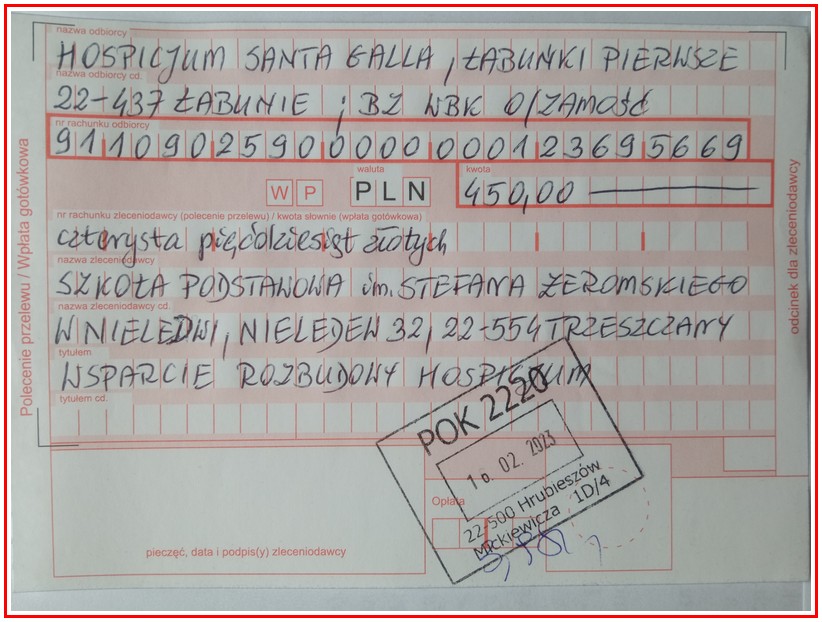 nazwa odbiorcy
HOSPICJUM SANTA GALLA, ŁABUŃKI PIERWSZE
nazwa odbiorcy cd.
22-437 ŁABUNIE ; BZ WBK O/ZAMOŚĆ
nr rachunku odbiorcy
91109025900000000123695669
waluta
kwota
W P PLN 450,00
nr rachunku zleceniodawcy (polecenie przelewu) / kwota słownie (wpłata gotówkowa)
czterysta pięćdziesiąt złotych
nazwa zleceniodawcy
SZKOŁA PODSTAWOWA im. STEFANA ŻEROMSKIEGO
nazwa zleceniodawcy cd.
W NIELEDWI, NIELEDEW 32, 22-554 TRZESZCZANY
tytułem
WSPARCIE ROZBUDOWY HOSPICJUM
tytułem cd.
POK 2220
10.02.2023
22-500 Hrubieszów
Mickiewicza 1D/4
Opłata
pieczęć, data i podpis(y) zleceniodawcy
Polecenie przelewu / Wpłata gotówkowa
odcinek dla zleceniodawcy